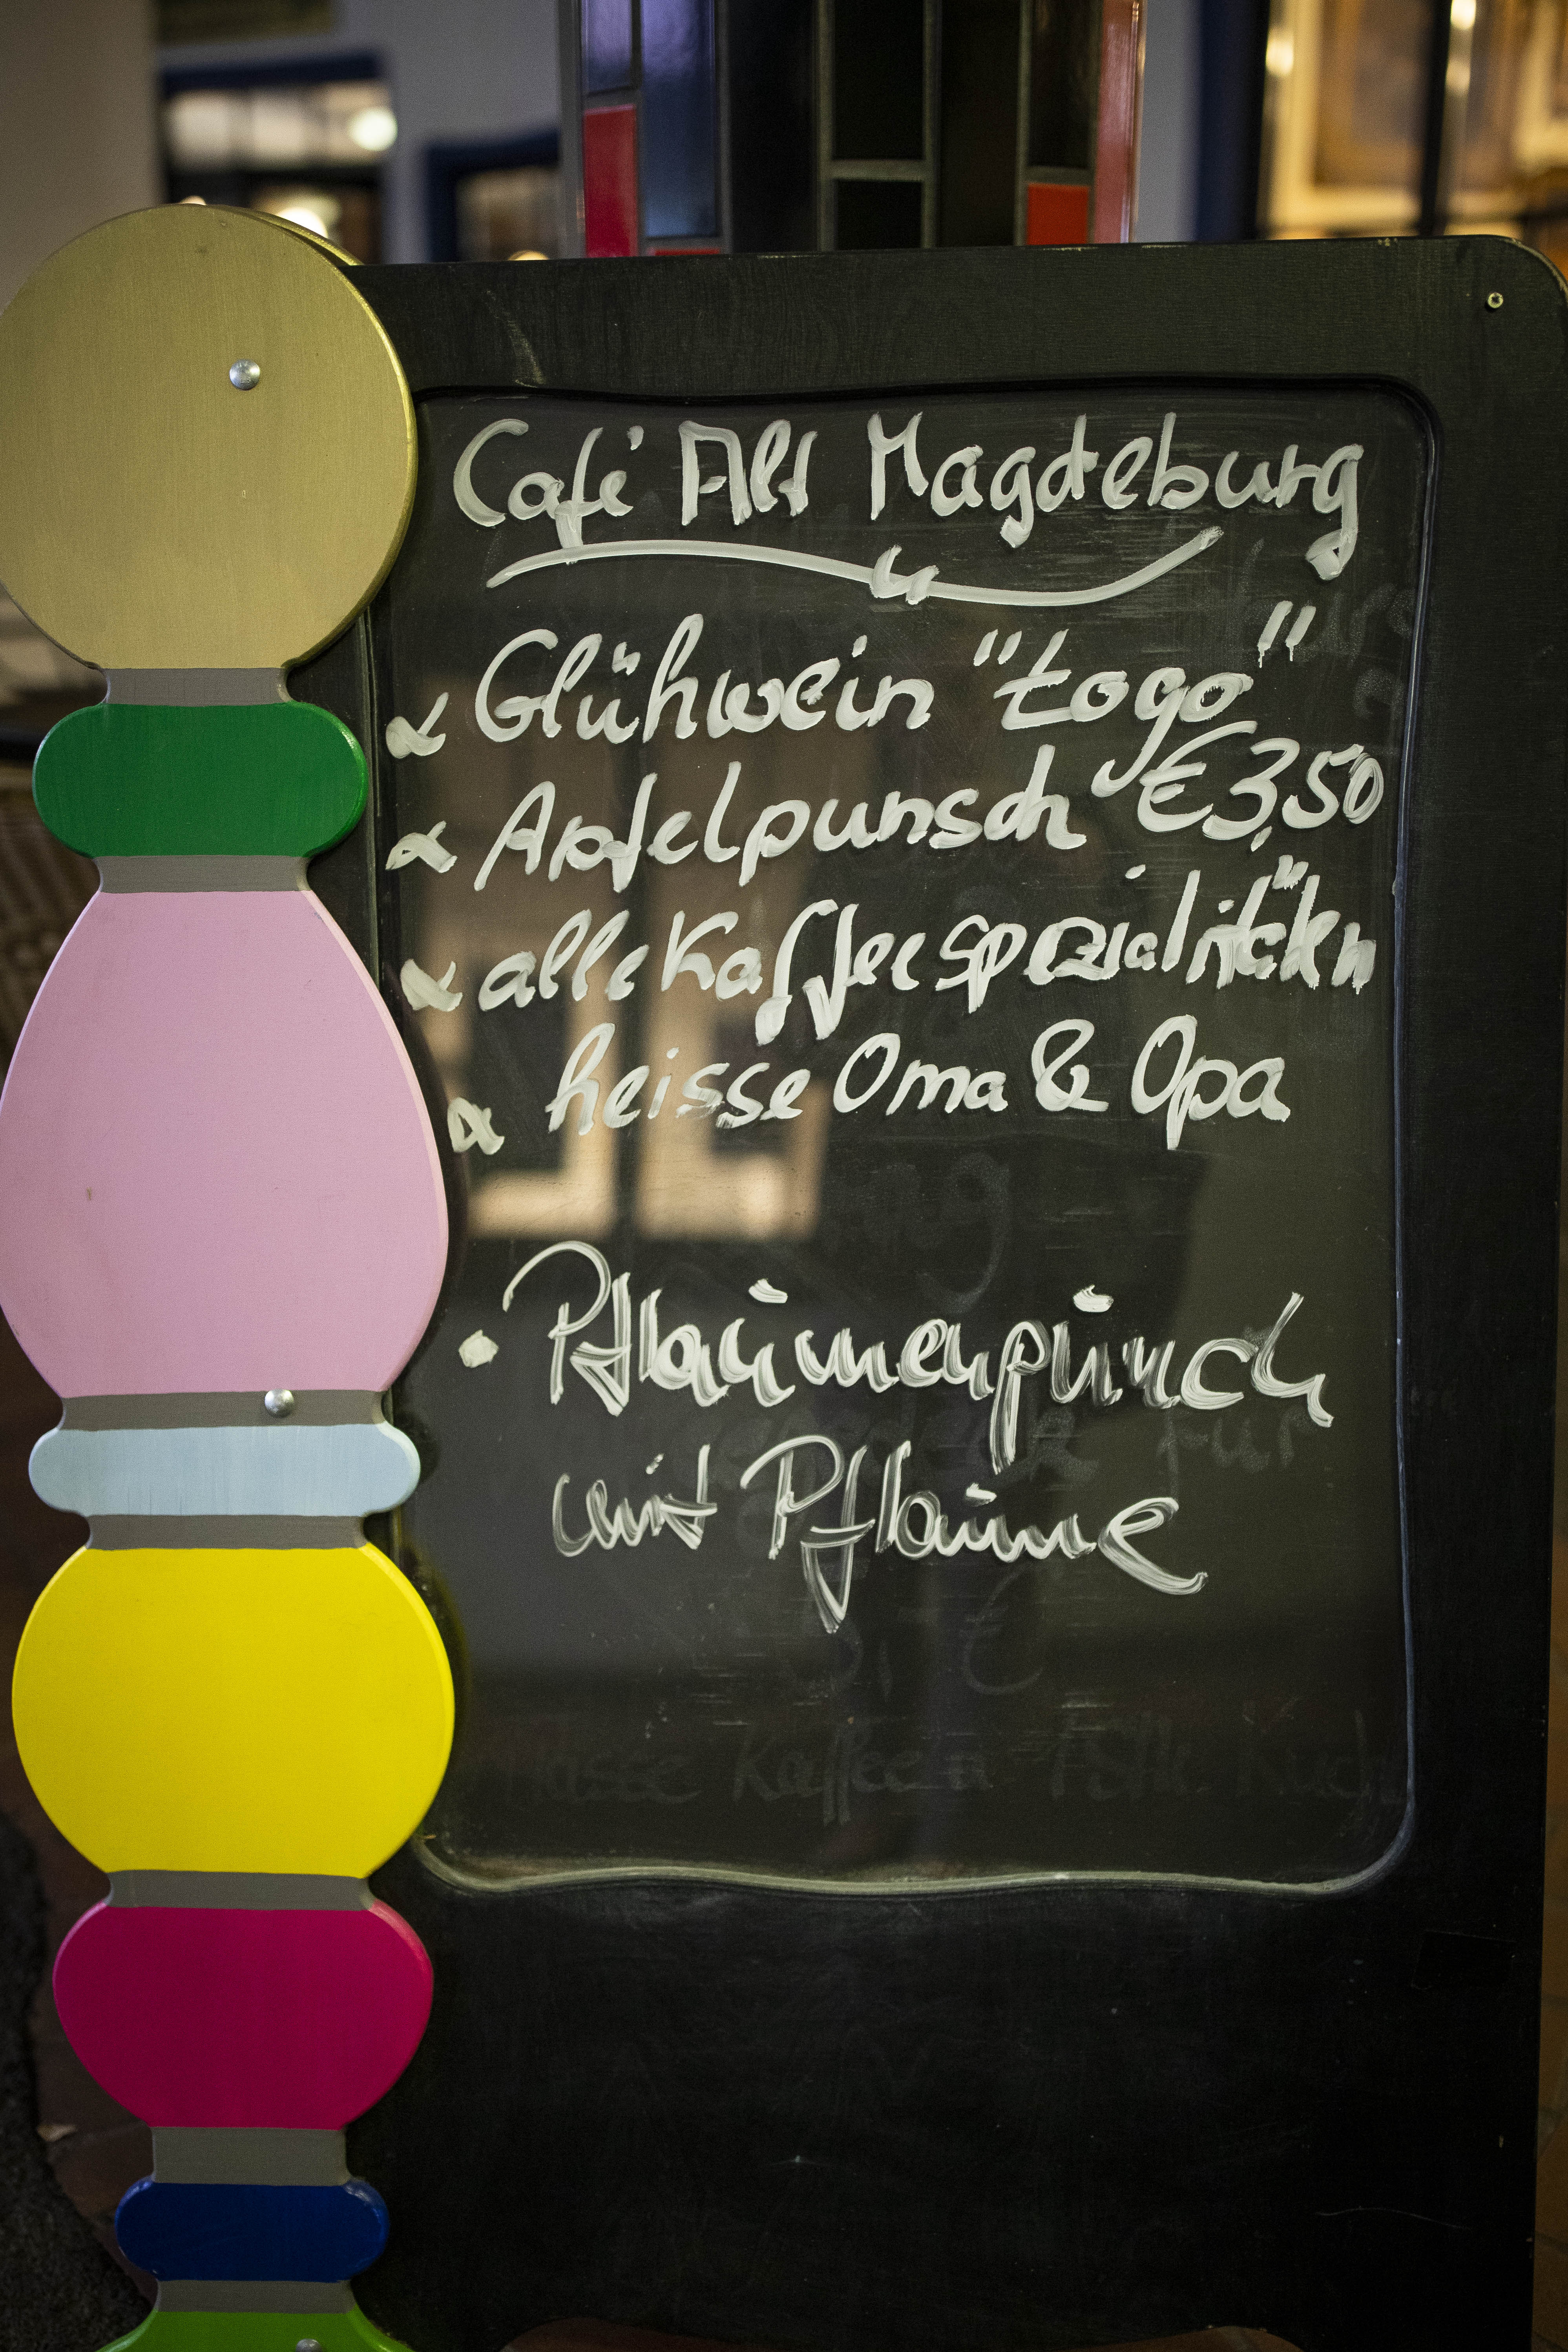 Café Alt Magdeburg
Glühwein "togo"
Apfelpunsch €3,50
alle Kaffeespezialitäten
heisse Oma & Opa
• Pflaumenpunsch
mit Pflaume
für
€
Kaffee